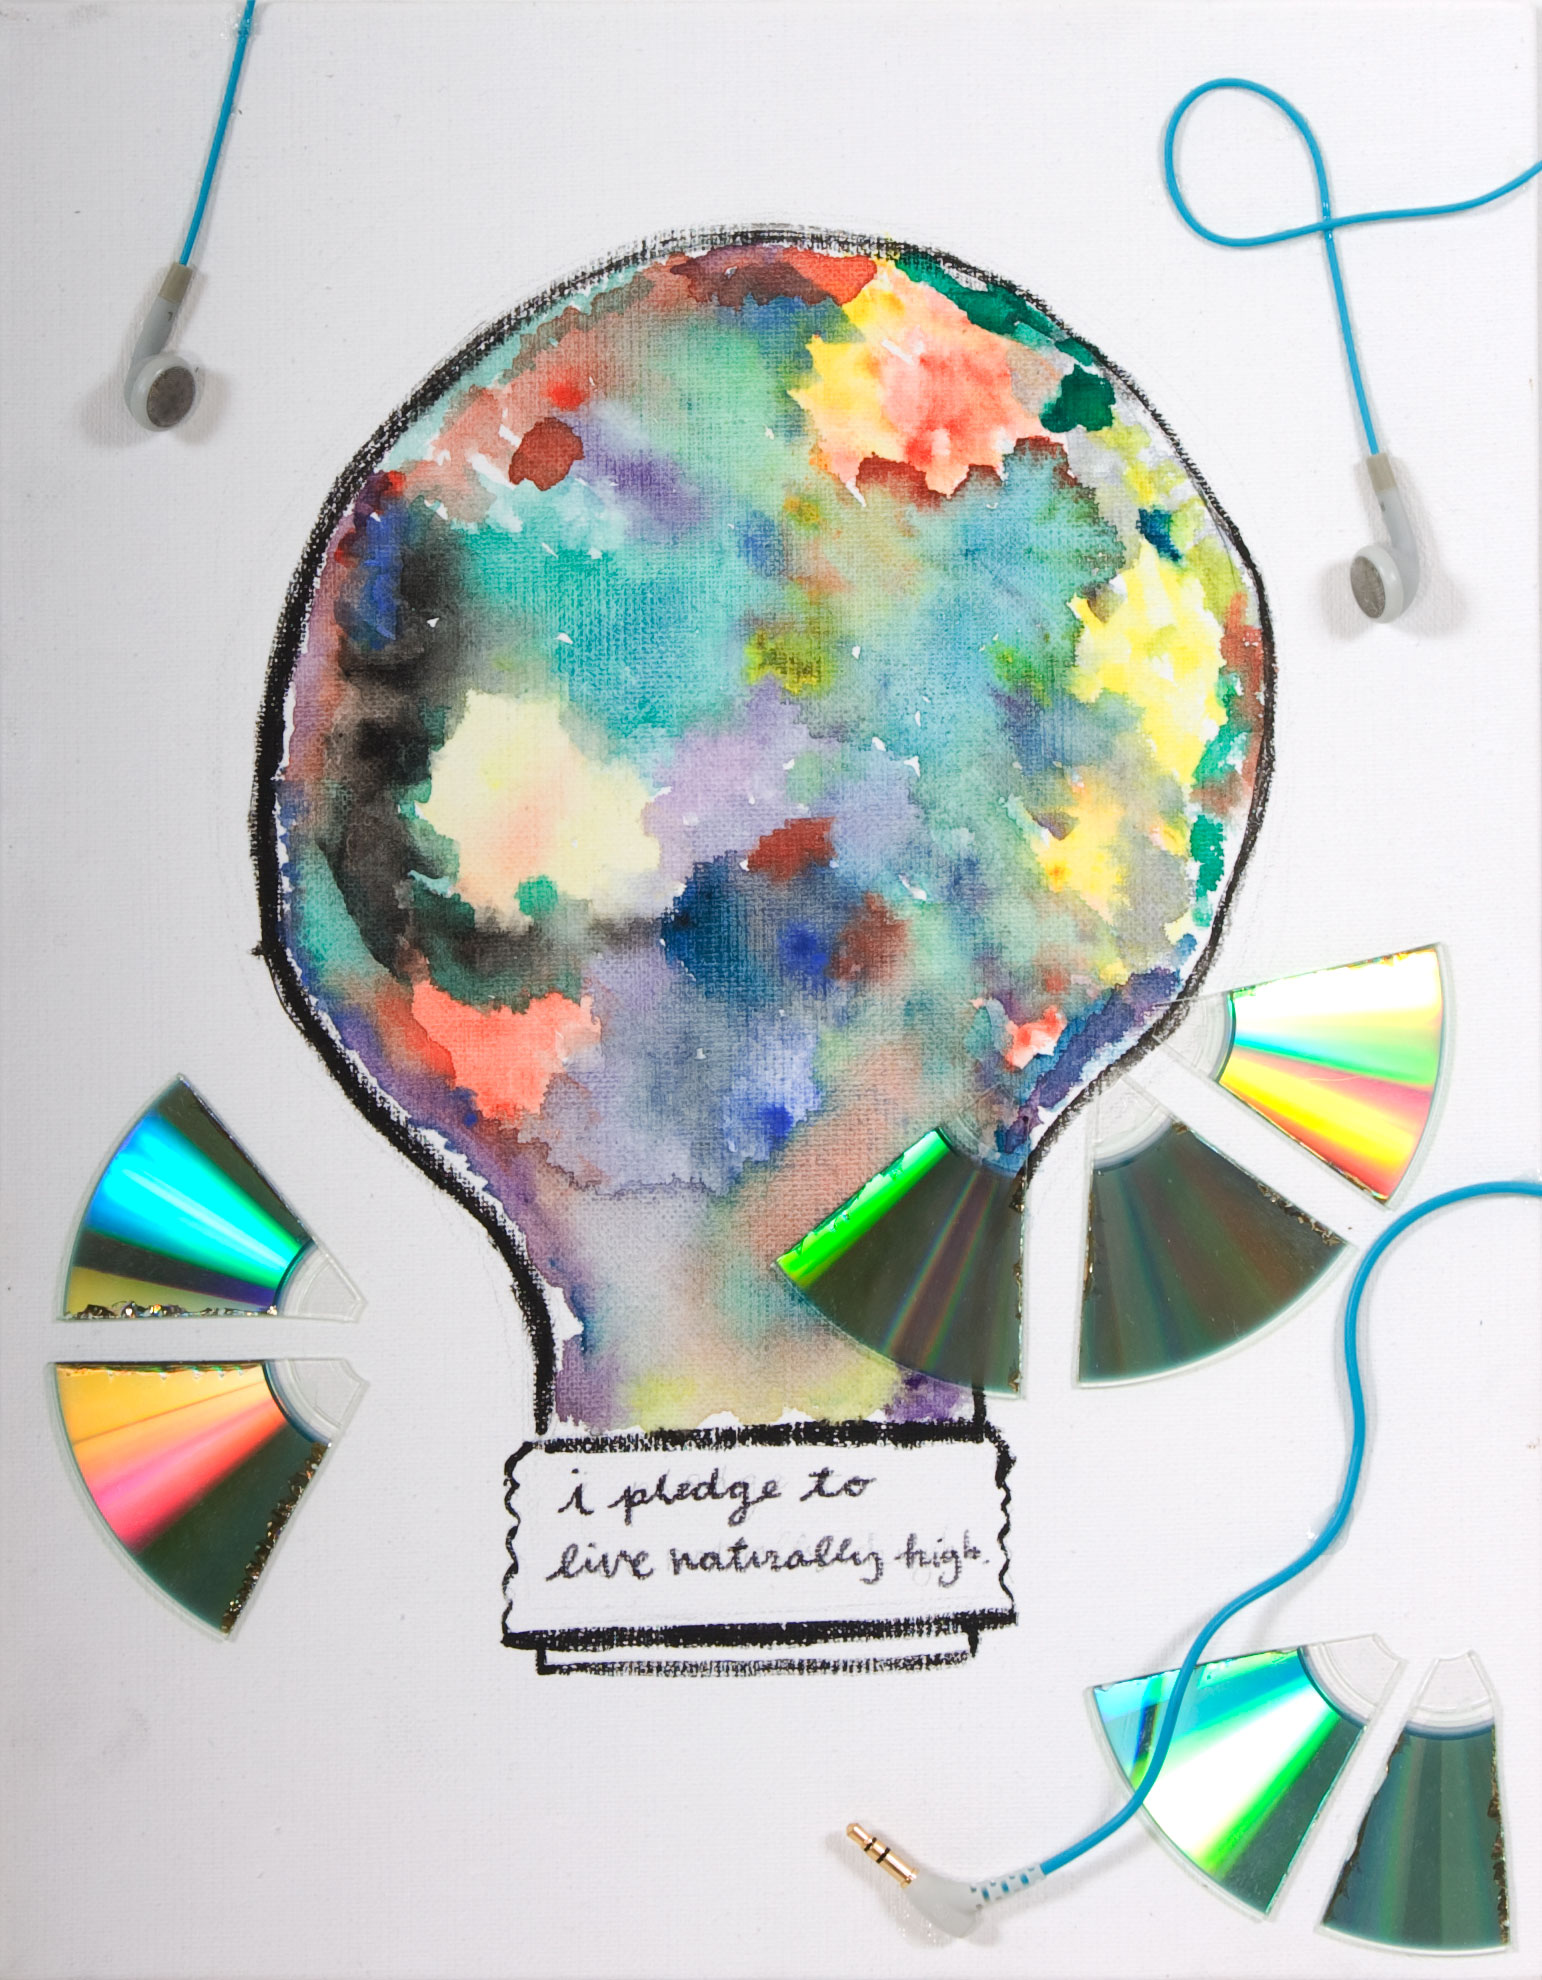 i pledge to
live naturally high.